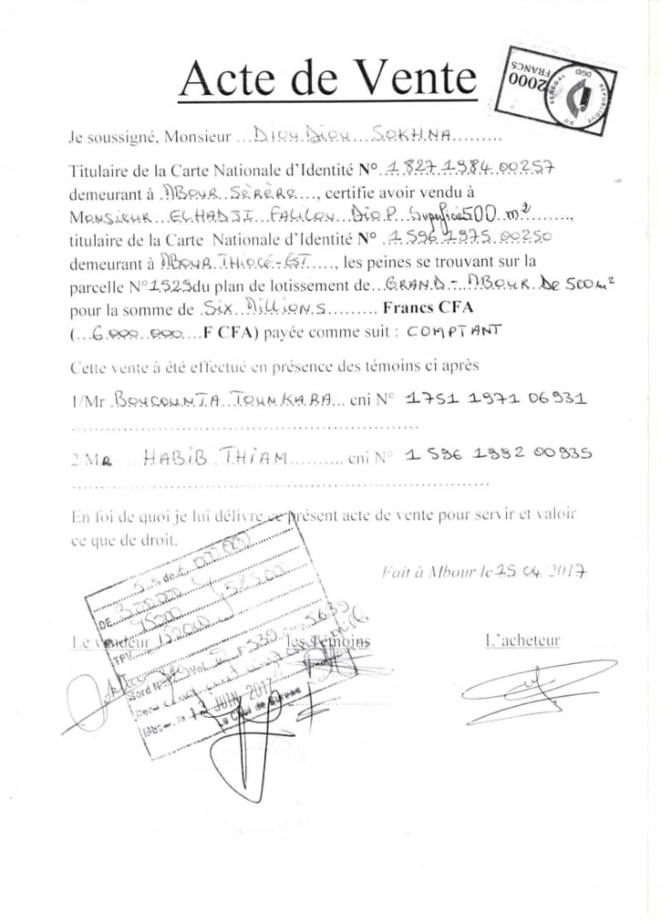 Acte de Vente
2000
FRANCS
REPUBLIQUE DU SENEGAL
DGID
Je soussigné, Monsieur ...DIOU.DIOU SOKHNA.........
Titulaire de la Carte Nationale d'Identité N° .1.827.1984.00257
demeurant à .MBOUR.SÈRÈRE...., certifie avoir vendu à
MONSIEUR EL.HADJI FALILOU DIOP. Superficie 500 m²..........,
titulaire de la Carte Nationale d'Identité N° .1 596.1975.00250
demeurant à MBOUR THIOCÉ-EST....., les peines se trouvant sur la
parcelle N°1523du plan de lotissement de...GRAND-MBOUR DE 500m²
pour la somme de SIX MILLIONS......... Francs CFA
(...6.000.000....F CFA) payée comme suit : COMPTANT
Cette vente à été effectué en présence des témoins ci après
1/Mr .BOUCOUNTA TOUNKARA... cni N° 1751 1971 06931
2 MR HABIB THIAM.......... cni N° 1 596 1992 00935
En foi de quoi je lui délivre ce présent acte de vente pour servir et valoir
ce que de droit.
Fait à Mbour le 25 04 2017
Le vendeur
Les témoins
L'acheteur
DE 300.000
15000
TPV
Bord N°
Vol
Mbour, le 13 JUIN 2017
Le Chef de Bureau